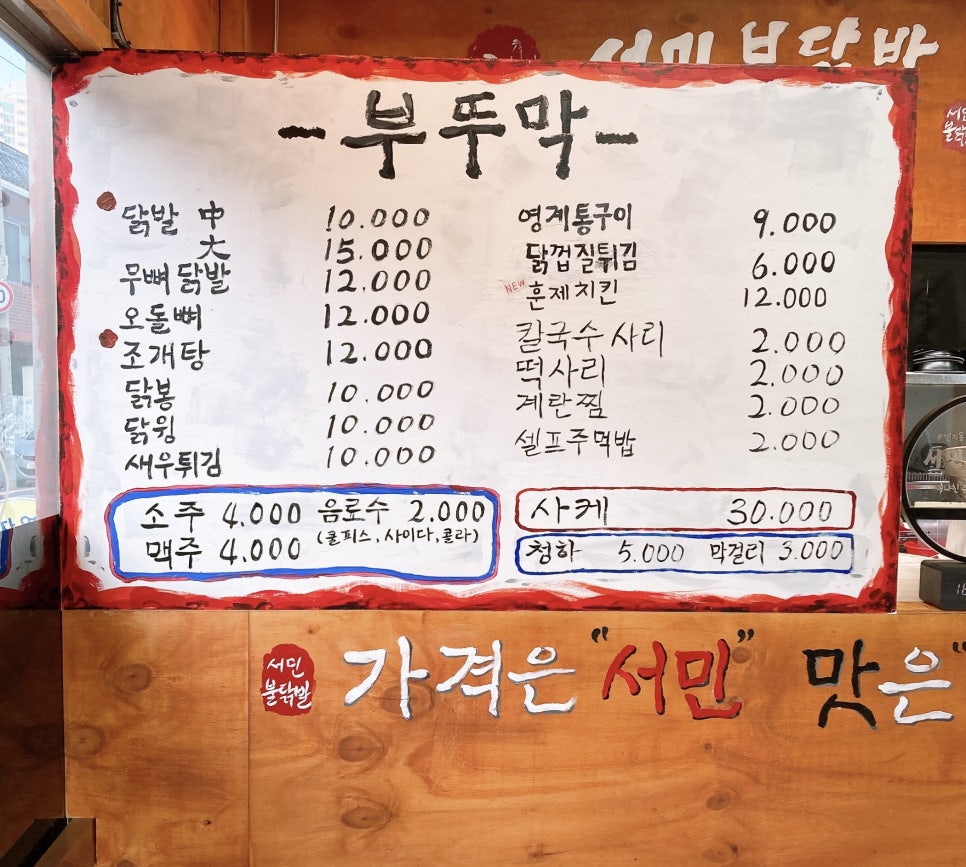 서민불닭발
-부뚜막-
닭발 中 10.000
大 15.000
무뼈닭발 12.000
오돌뼈 12.000
조개탕 12.000
닭봉 10.000
닭윙 10.000
새우튀김 10.000
영계통구이 9.000
닭껍질튀김 6.000
NEW 훈제치킨 12.000
칼국수사리 2.000
떡사리 2.000
계란찜 2.000
셀프주먹밥 2.000
소주 4.000 음료수 2.000
(쿨피스,사이다,콜라)
맥주 4.000
사케 30.000
청하 5.000 막걸리 3.000
서민
불닭발
서민
불닭발
가격은 "서민" 맛은"